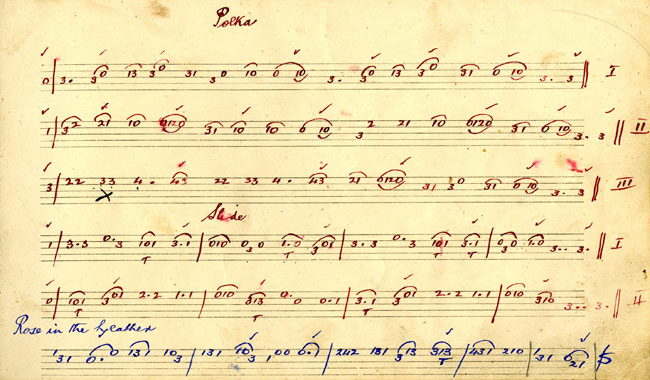 Polka
0 3. 30 13 30 31 30 10 0 10 3. 30 13 30 31 0 10 3. 3 I
1 32 21 10 0120 31 10 10 0 10 32 21 10 0120 31 0 10 3. 3 II
3 22 33 4. 43 22 33 4. 43 21 0120 31 30 31 0 10 3. 3 III
Slide
1 3.3 0.3 101 3.1 010 030 1.0 301 3.3 0.3 101 3.1 030 1.0 3.. 3. I
T T T
0 101 301 2.2 1.1 010 313 0.0 0.1 3.1 301 2.2 1.1 010 310 3.. 3. II
T T T
Rose in the Heather
131 0.0 131 103 131 103 100 0. 242 131 313 313 431 210 131 0 21
T